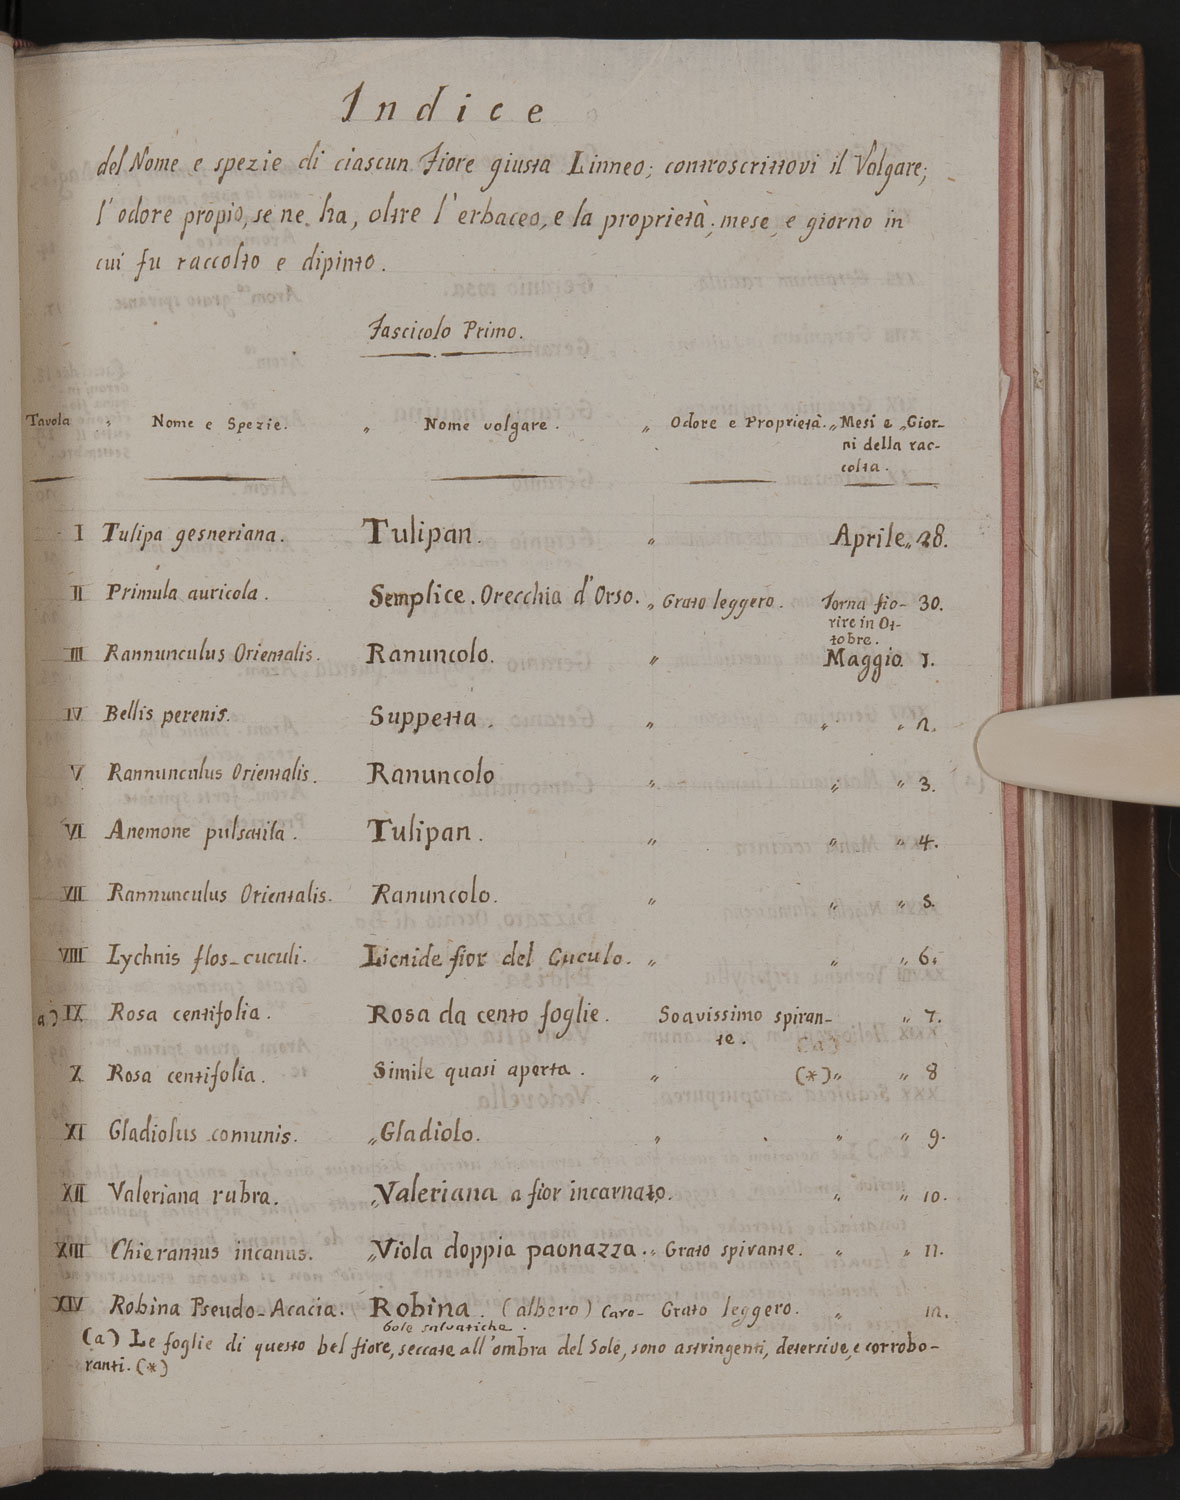 Indice
del Nome e spezie di ciascun Fiore giusta Linneo; controscrittovi il Volgare;
l'odore propio, se ne ha, oltre l'erbaceo, e la proprietà; mese, e giorno in
cui fu raccolto e dipinto.
Fascicolo Primo.
Tavola „ Nome e Spezie. „ Nome volgare. „ Odore e Proprietà. „ Mesi e „ Gior-
ni della rac-
colta.
I Tulipa gesneriana. Tulipan. „ Aprile „ 28.
II Primula auricola. Semplice. Orecchia d'Orso. „ Grato leggero. Torna fio- 30.
rire in Ot-
tobre.
III Rannunculus Orientalis. Ranuncolo. „ Maggio 1.
IV Bellis perenis. Suppetta. „ „ „ 2.
V Rannunculus Orientalis. Ranuncolo „ „ „ 3.
VI Anemone pulsatila. Tulipan. „ „ „ 4.
VII Rannunculus Orientalis. Ranuncolo. „ „ „ 5.
VIII Lychnis flos-cuculi. Licnide fior del Cuculo. „ „ „ 6.
a) IX Rosa centifolia. Rosa da cento foglie. Soavissimo spiran- „ 7.
te.
X Rosa centifolia. Simile quasi aperta. „ (*) „ „ 8
XI Gladiolus comunis. „ Gladiolo. „ „ „ 9.
XII Valeriana rubra. „ Valeriana a fior incarnato. „ „ 10.
XIII Chierantus incanus. „ Viola doppia paonazza. „ Grato spirante. „ „ 11.
XIV Robina Pseudo-Acacia. Robina. (albero) Caro- Grato leggero. „ 12.
bole salvatiche.
(a) Le foglie di questo bel fiore, seccate all'ombra del Sole, sono astringenti, detersive, e corrobo-
ranti. (*)